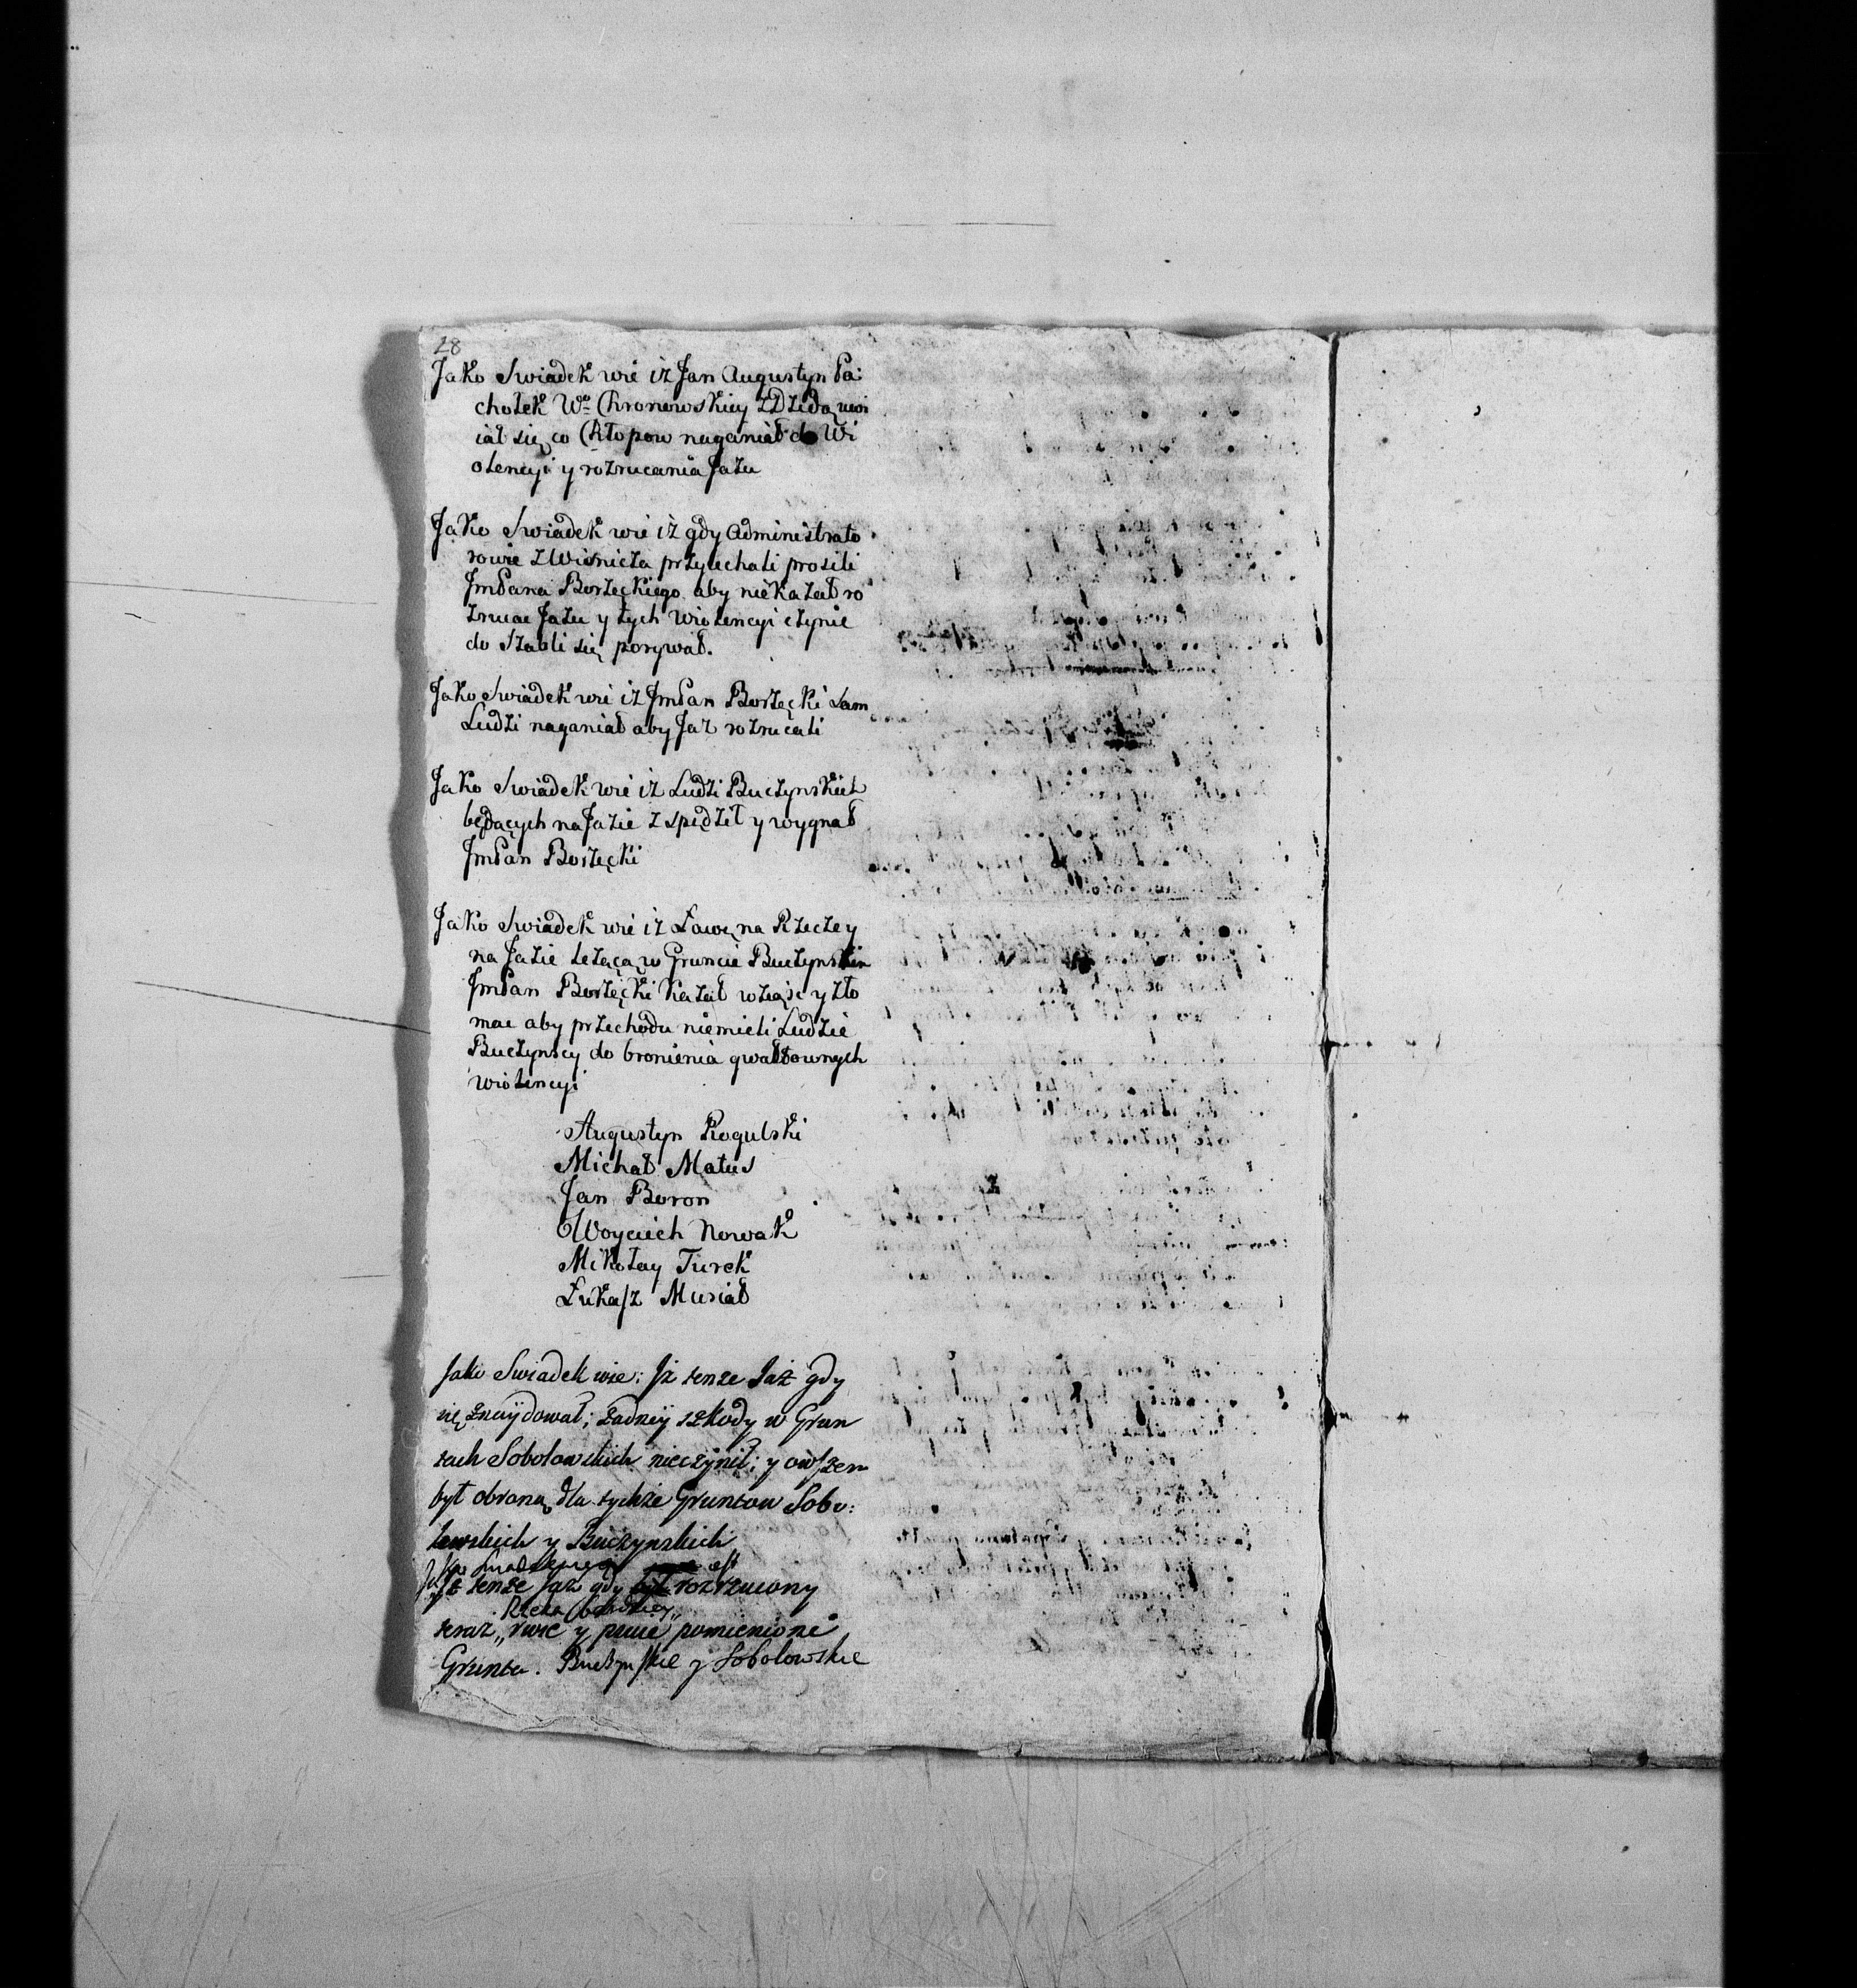 28
Jako Swiadek wie iz Jan Augustyn Pa:
chołek Wo Chronowskiey z Dzidą uwi
iał się co Chłopow naganiał do Wi
olencyi y rozrucania Jazu
Jako Swiadek wie iż gdy Administrato
rowie z Wisnicza przyiechali prosili
JmPana Borzęckiego aby niekazał ro
zrucac Jazu y tych Wiolencyi czynic
do Szabli się porywał.
Jako Swiadek wie iz JmPan Borzęcki sam
Ludzi naganiał aby Jaz rozrucali
Jako Swiadek wie iz Ludzi Buczynskich
będących na Jazie z spędził y wygnał
JmPan Borzęcki
Jako Swiadek wie iz Ławę na Rzecze y
na Jazie lezącą w Gruncie Buczynskim
JmPan Borzęcki kazał wziąsc y zło
mac aby przechodu niemieli Ludzie
Buczynscy do bronienia gwałtownych
wiolencyi
Augustyn Rogulski
Michał Matus
Jan Boron
Woyciech Nowak
Mikołay Turek
Łukasz Musiał
Jako Swiadek wie: Jż tenze Jaż gdy
się znaydował; żadney szkody w Grun
tach Sobolowskich nieczynił; y owszem
był obroną dla tychże Gruntow Sobo:
lowskich y Buczynskich
Jż tenze Jaz gdy był rozrzucony
Rzeka
teraz „ rwie y psuie pomienione
Grunta. Buczynskie y Sobolowskie